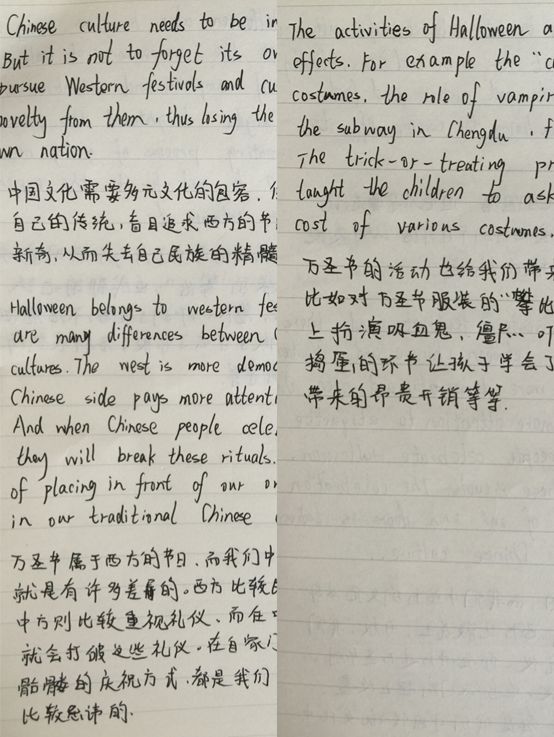 Chinese culture needs to be in
But it is not to forget its o
pursue Western festivals and cu
novelty from them, thus losing the
wn nation.
中国文化需要多元文化的包容,
自己的传统,盲目追求西方的节
新奇,从而失去自己民族的精髓
Halloween belongs to western fes
are many differences between
cultures. The west is more democ
Chinese side pays more attent
And when Chinese people cele
they will break these rituals.
of placing in front of our o
in our traditional Chinese
万圣节属于西方的节日,而我们中
就是有许多差异的。西方比较
中方则比较重视礼仪,而在
就会打破这些礼仪。在自家门
骷髅的庆祝方式,都是我们
比较忌讳的.
The activities of Halloween a
effects. For example the "c
costumes, the role of vampir
the subway in Chengdu, f
The trick-or-treating pr
taught the children to ask
cost of various costumes.
万圣节的活动也给我们带来
比如对万圣节服装的"攀比
上扮演吸血鬼,僵尸..
捣蛋的环节让孩子学会了
带来的昂贵开销等等.